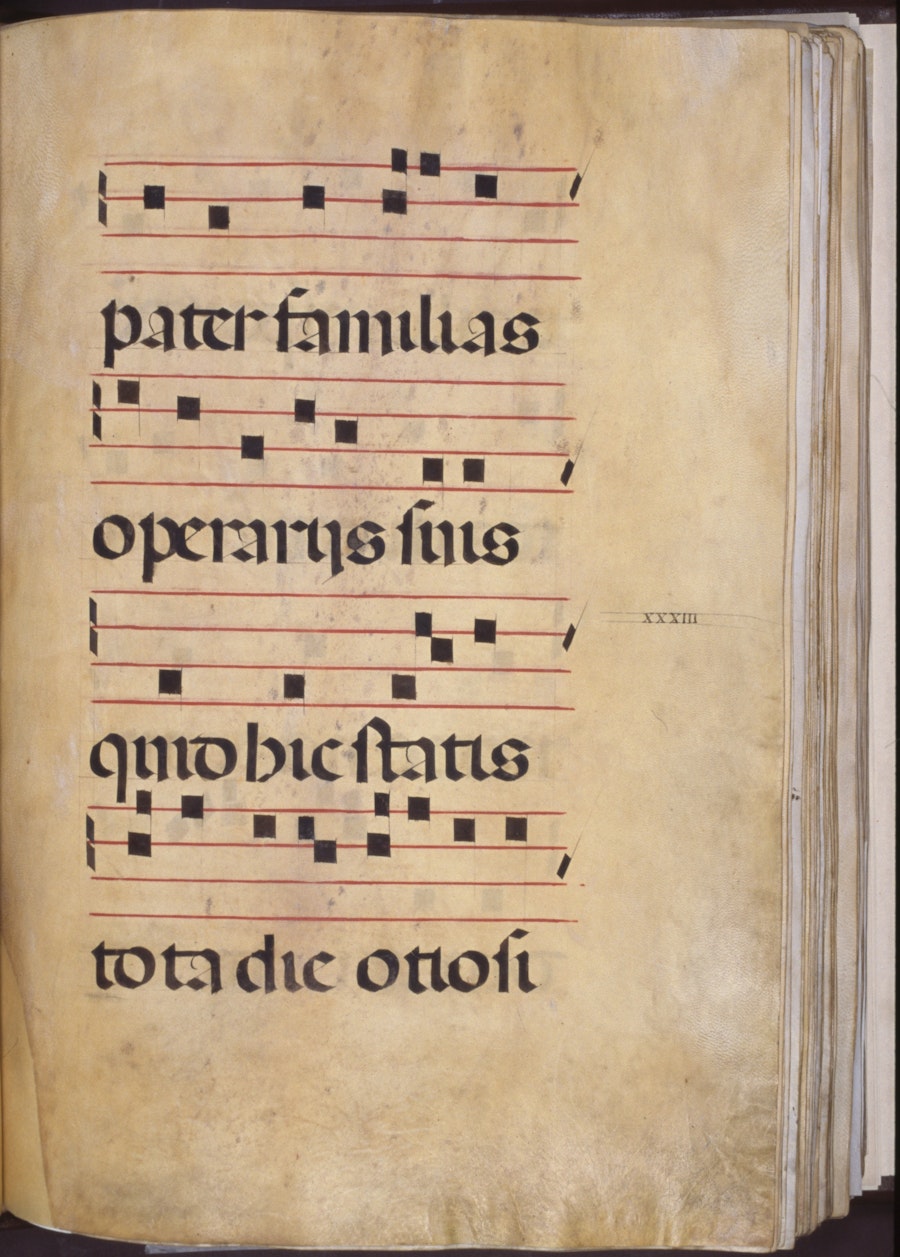 pater familias
operarijs suis
XXXIII
quid hic statis
tota die otiosi